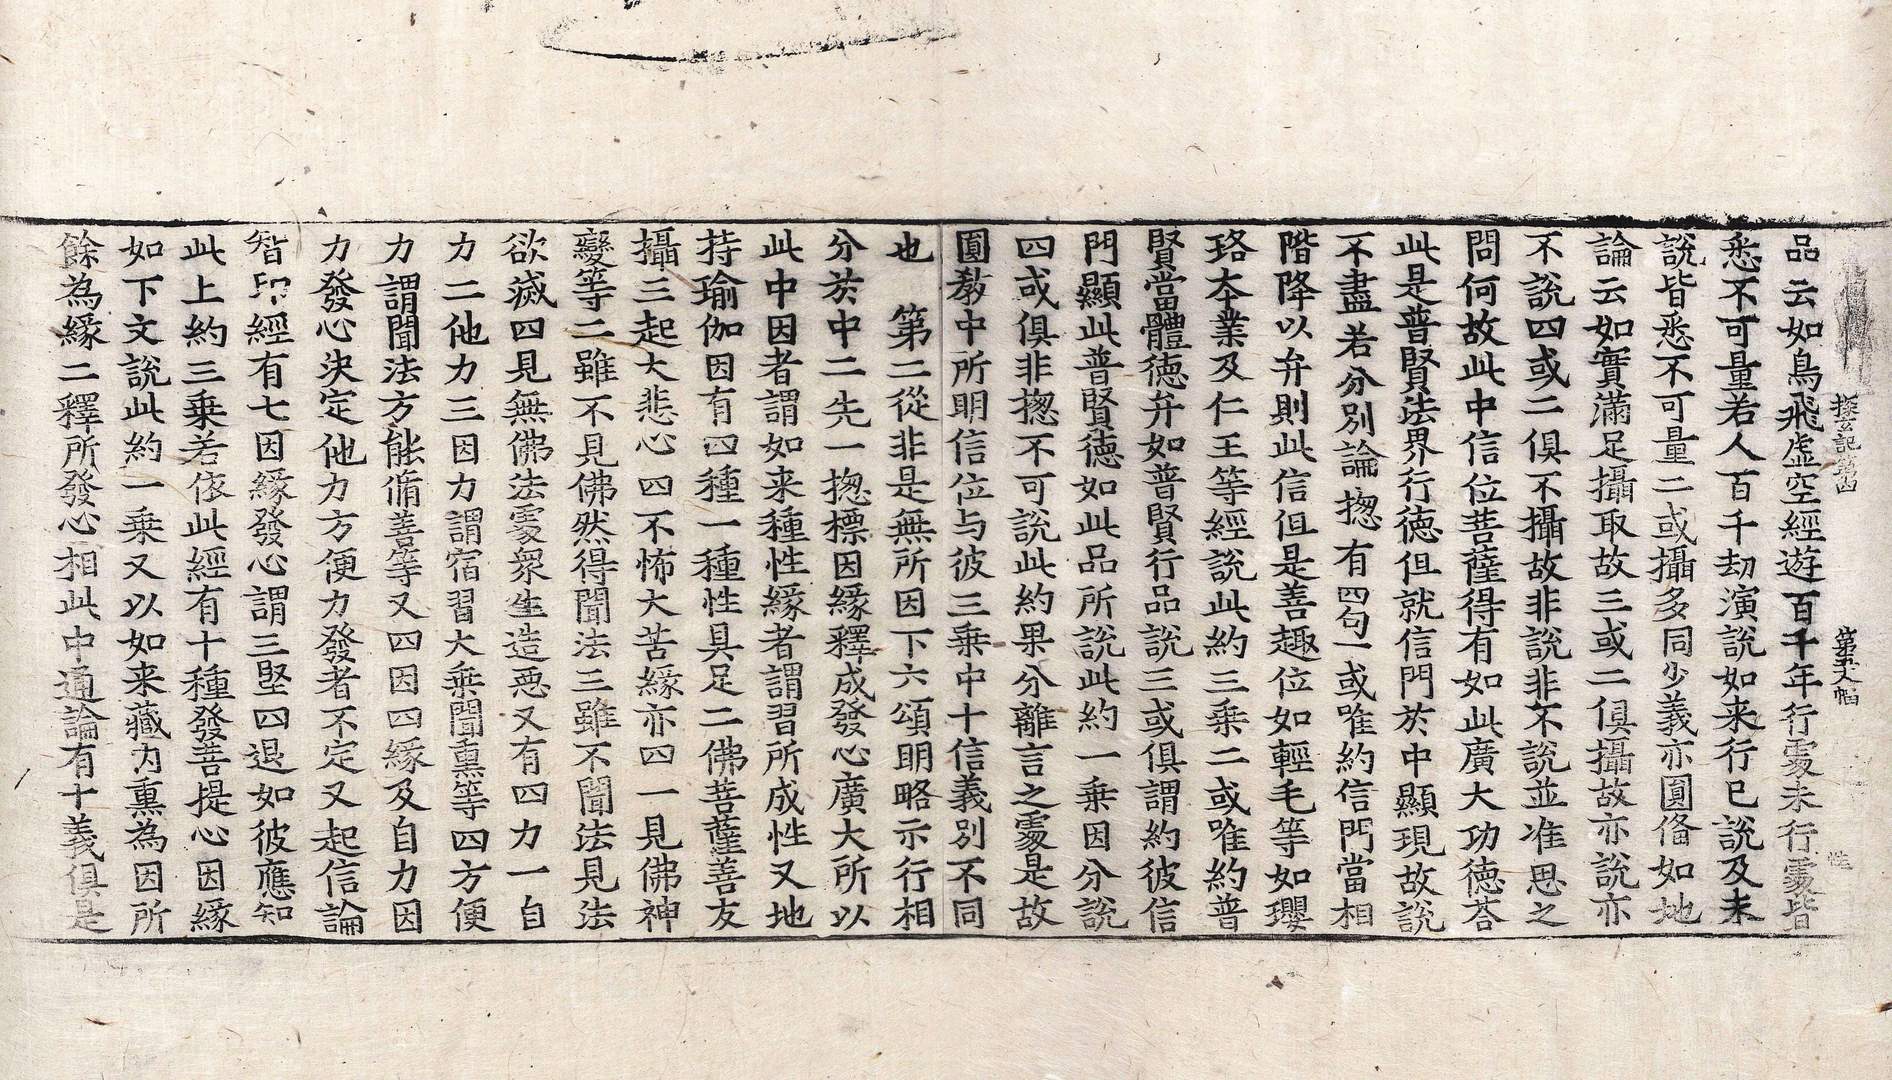 探玄記第四　第五丈幅　性
品云如鳥飛虛空經遊百千年行處未行處皆
悉不可量若人百千劫演說如来行已說及未
說皆悉不可量二或攝多同少義亦圓俻如地
論云如實滿足攝取故三或二俱攝故亦說亦
不說四或二俱不攝故非說非不說並准思之
問何故此中信位菩薩得有如此廣大功德荅
此是普賢法界行德但就信門於中顯現故說
不盡若分別論揔有四句一或唯約信門當相
階降以弁則此信但是善趣位如輕毛等如瓔
珞夲業及仁王等經說此約三乘二或唯約普
賢當體德弁如普賢行品說三或俱謂約彼信
門顯此普賢德如此品所說此約一乗因分說
四或俱非揔不可說此約果分離言之處是故
圓教中所明信位与彼三乗中十信義別不同
也　第二從非是無所因下六頌明略示行相
分於中二先一揔標因緣釋成發心廣大所以
此中因者謂如来種性緣者謂習所成性又地
持瑜伽因有四種一種性具足二佛菩薩善友
攝三起大悲心四不怖大苦緣亦四一見佛神
變等二雖不見佛然得聞法三雖不聞法見法
欲滅四見無佛法處衆生造惡又有四力一自
力二他力三因力謂宿習大乗聞熏等四方便
力謂聞法方能脩善等又四因四緣及自力因
力發心決定他力方便力發者不定又起信論
智印經有七因緣發心謂三堅四退如彼應知
此上約三乗若依此經有十種發菩提心因緣
如下文說此約一乗又以如来藏内熏為因所
餘為緣二釋所發心相此中通論有十義俱是